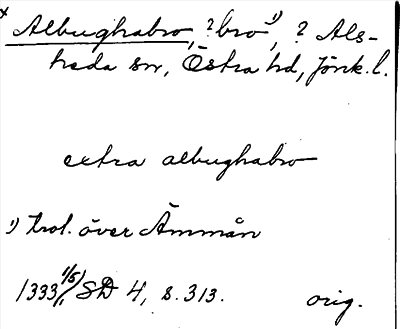 x Albughabro, ? bro 1), ? Als-
heda sn, Östra hd, Jönk. l.
extra albughabro
1) Trol. över Ämmån
1333 1/5, SD 4, s. 313. orig.